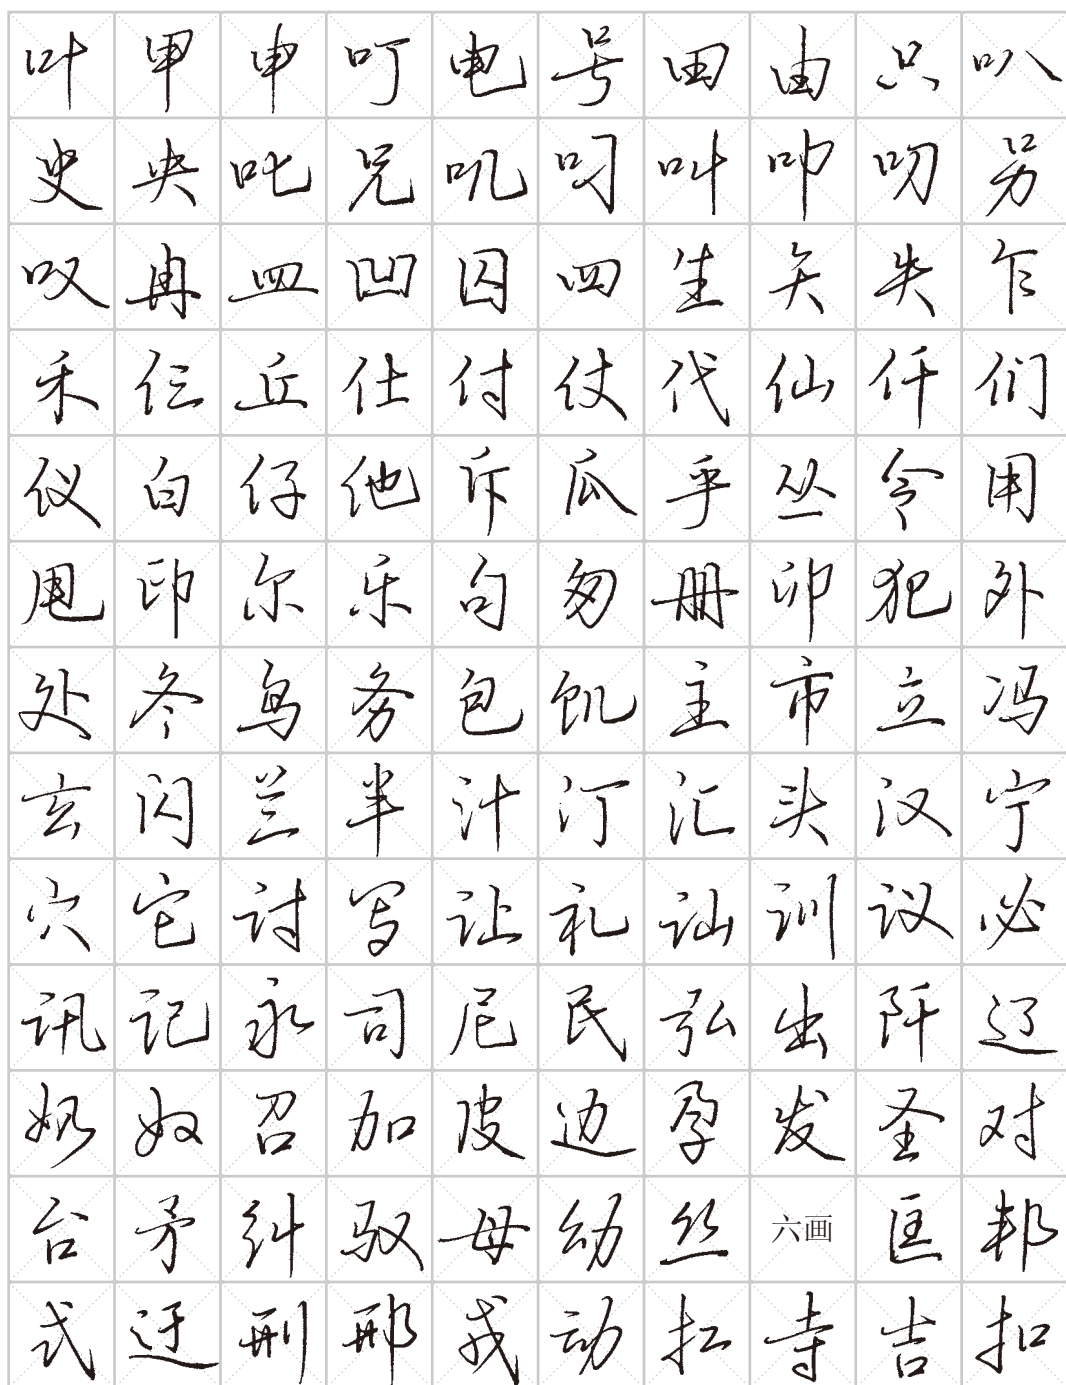 叶甲申叮电号田由只叭
史央叱兄叽叼叫叩叨另
叹冉皿凹囚四生矢失乍
禾仨丘仕付仗代仙仟们
仪白仔他斥瓜乎丛令用
甩印尔乐句匆册卯犯外
处冬鸟务包饥主市立冯
玄闪兰半汁汀汇头汉宁
穴它讨写让礼讪训议必
讯记永司尼民弘出阡辽
奶奴召加皮边孕发圣对
台矛纠驭母幼丝六画匡邦
式迂刑邢戎动扛寺吉扣